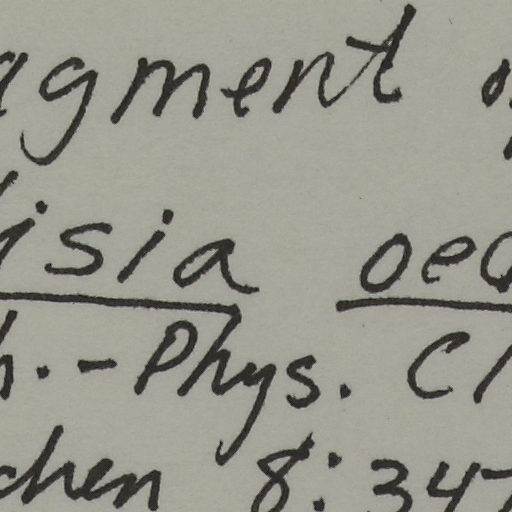 agment o
isia oed
h.-Phys. Cl
chen 8:347